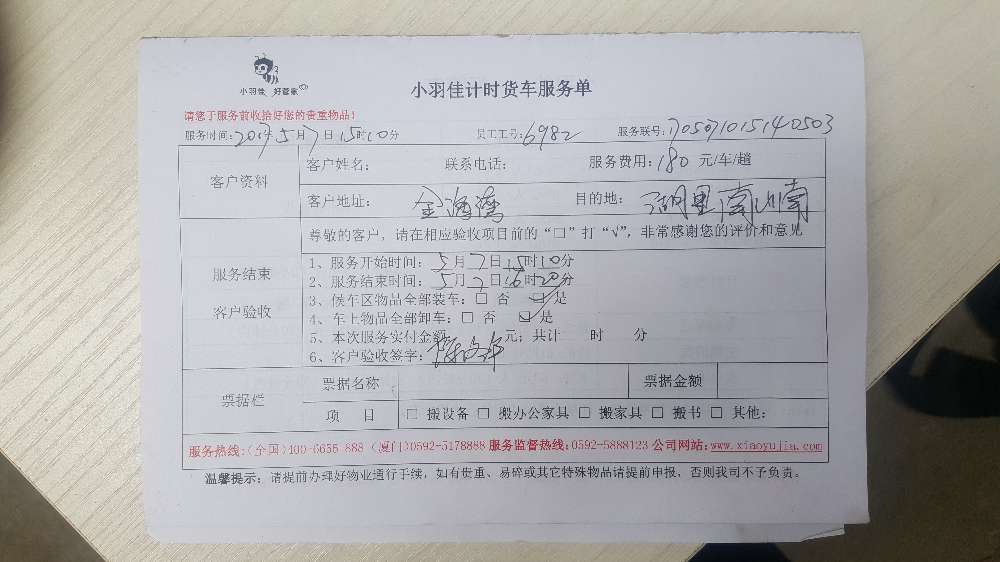 小羽佳 好管家
小羽佳计时货车服务单
请您于服务前收拾好您的贵重物品!
服务时间:2017年5月7日15时10分 员工工号:6982 服务联号:170507101515140503
客户资料
客户姓名: 联系电话: 服务费用:180 元/车/趟
客户地址: 金海湾 目的地: 湖里南山南
尊敬的客户,请在相应验收项目前的“□”打“√”,非常感谢您的评价和意见
服务结束
客户验收
1、服务开始时间:5月7日15时10分
2、服务结束时间:5月7日16时20分
3、候车区物品全部装车:□ 否 ☑ 是
4、车上物品全部卸车:□ 否 ☑ 是
5、本次服务实付金额 元;共计 时 分
6、客户验收签字:
票据栏
票据名称 票据金额
项 目 □ 搬设备 □ 搬办公家具 □ 搬家具 □ 搬书 □ 其他:
服务热线:(全国)400-6655 888 (厦门)0592-5178888 服务监督热线:0592-5888123 公司网站:www.xiaoyujia.com
温馨提示:请提前办理好物业通行手续,如有贵重、易碎或其它特殊物品请提前申报,否则我司不予负责。